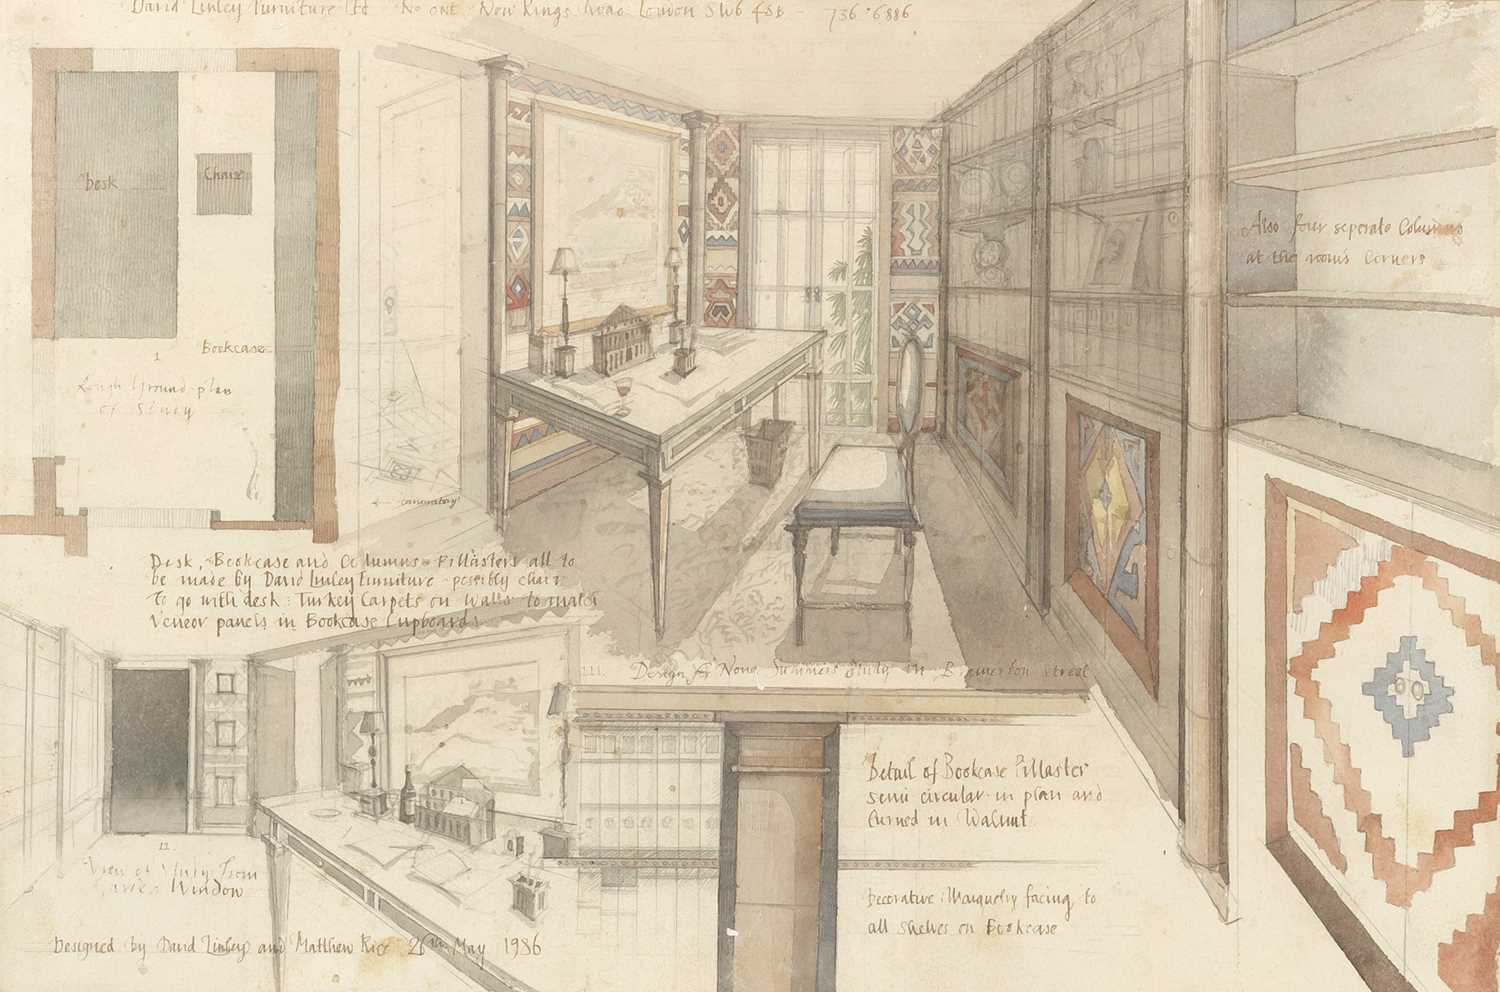 David Linley Furniture Ltd No one New Kings Road London SW6 4SB - 736 · 6886
Desk
Chair
Bookcase
1
Rough Ground plan
of Study
Also four seperate Columns
at the rooms Corners
Desk, Bookcase and Columns + Pillasters all to
be made by David Linley Furniture - possibly chair
To go with desk: Turkey Carpets on Walls to match
Veneer panels in Bookcase Cupboards
III Design for Summers Study in Street
Detail of Bookcase Pillaster
semi circular in plan and
turned in Walnut
11.
View of Study From
Window
Decorative Marquetry facing to
all shelves on Bookcase
Designed by David Linley and Matthew Rice 26th May 1986